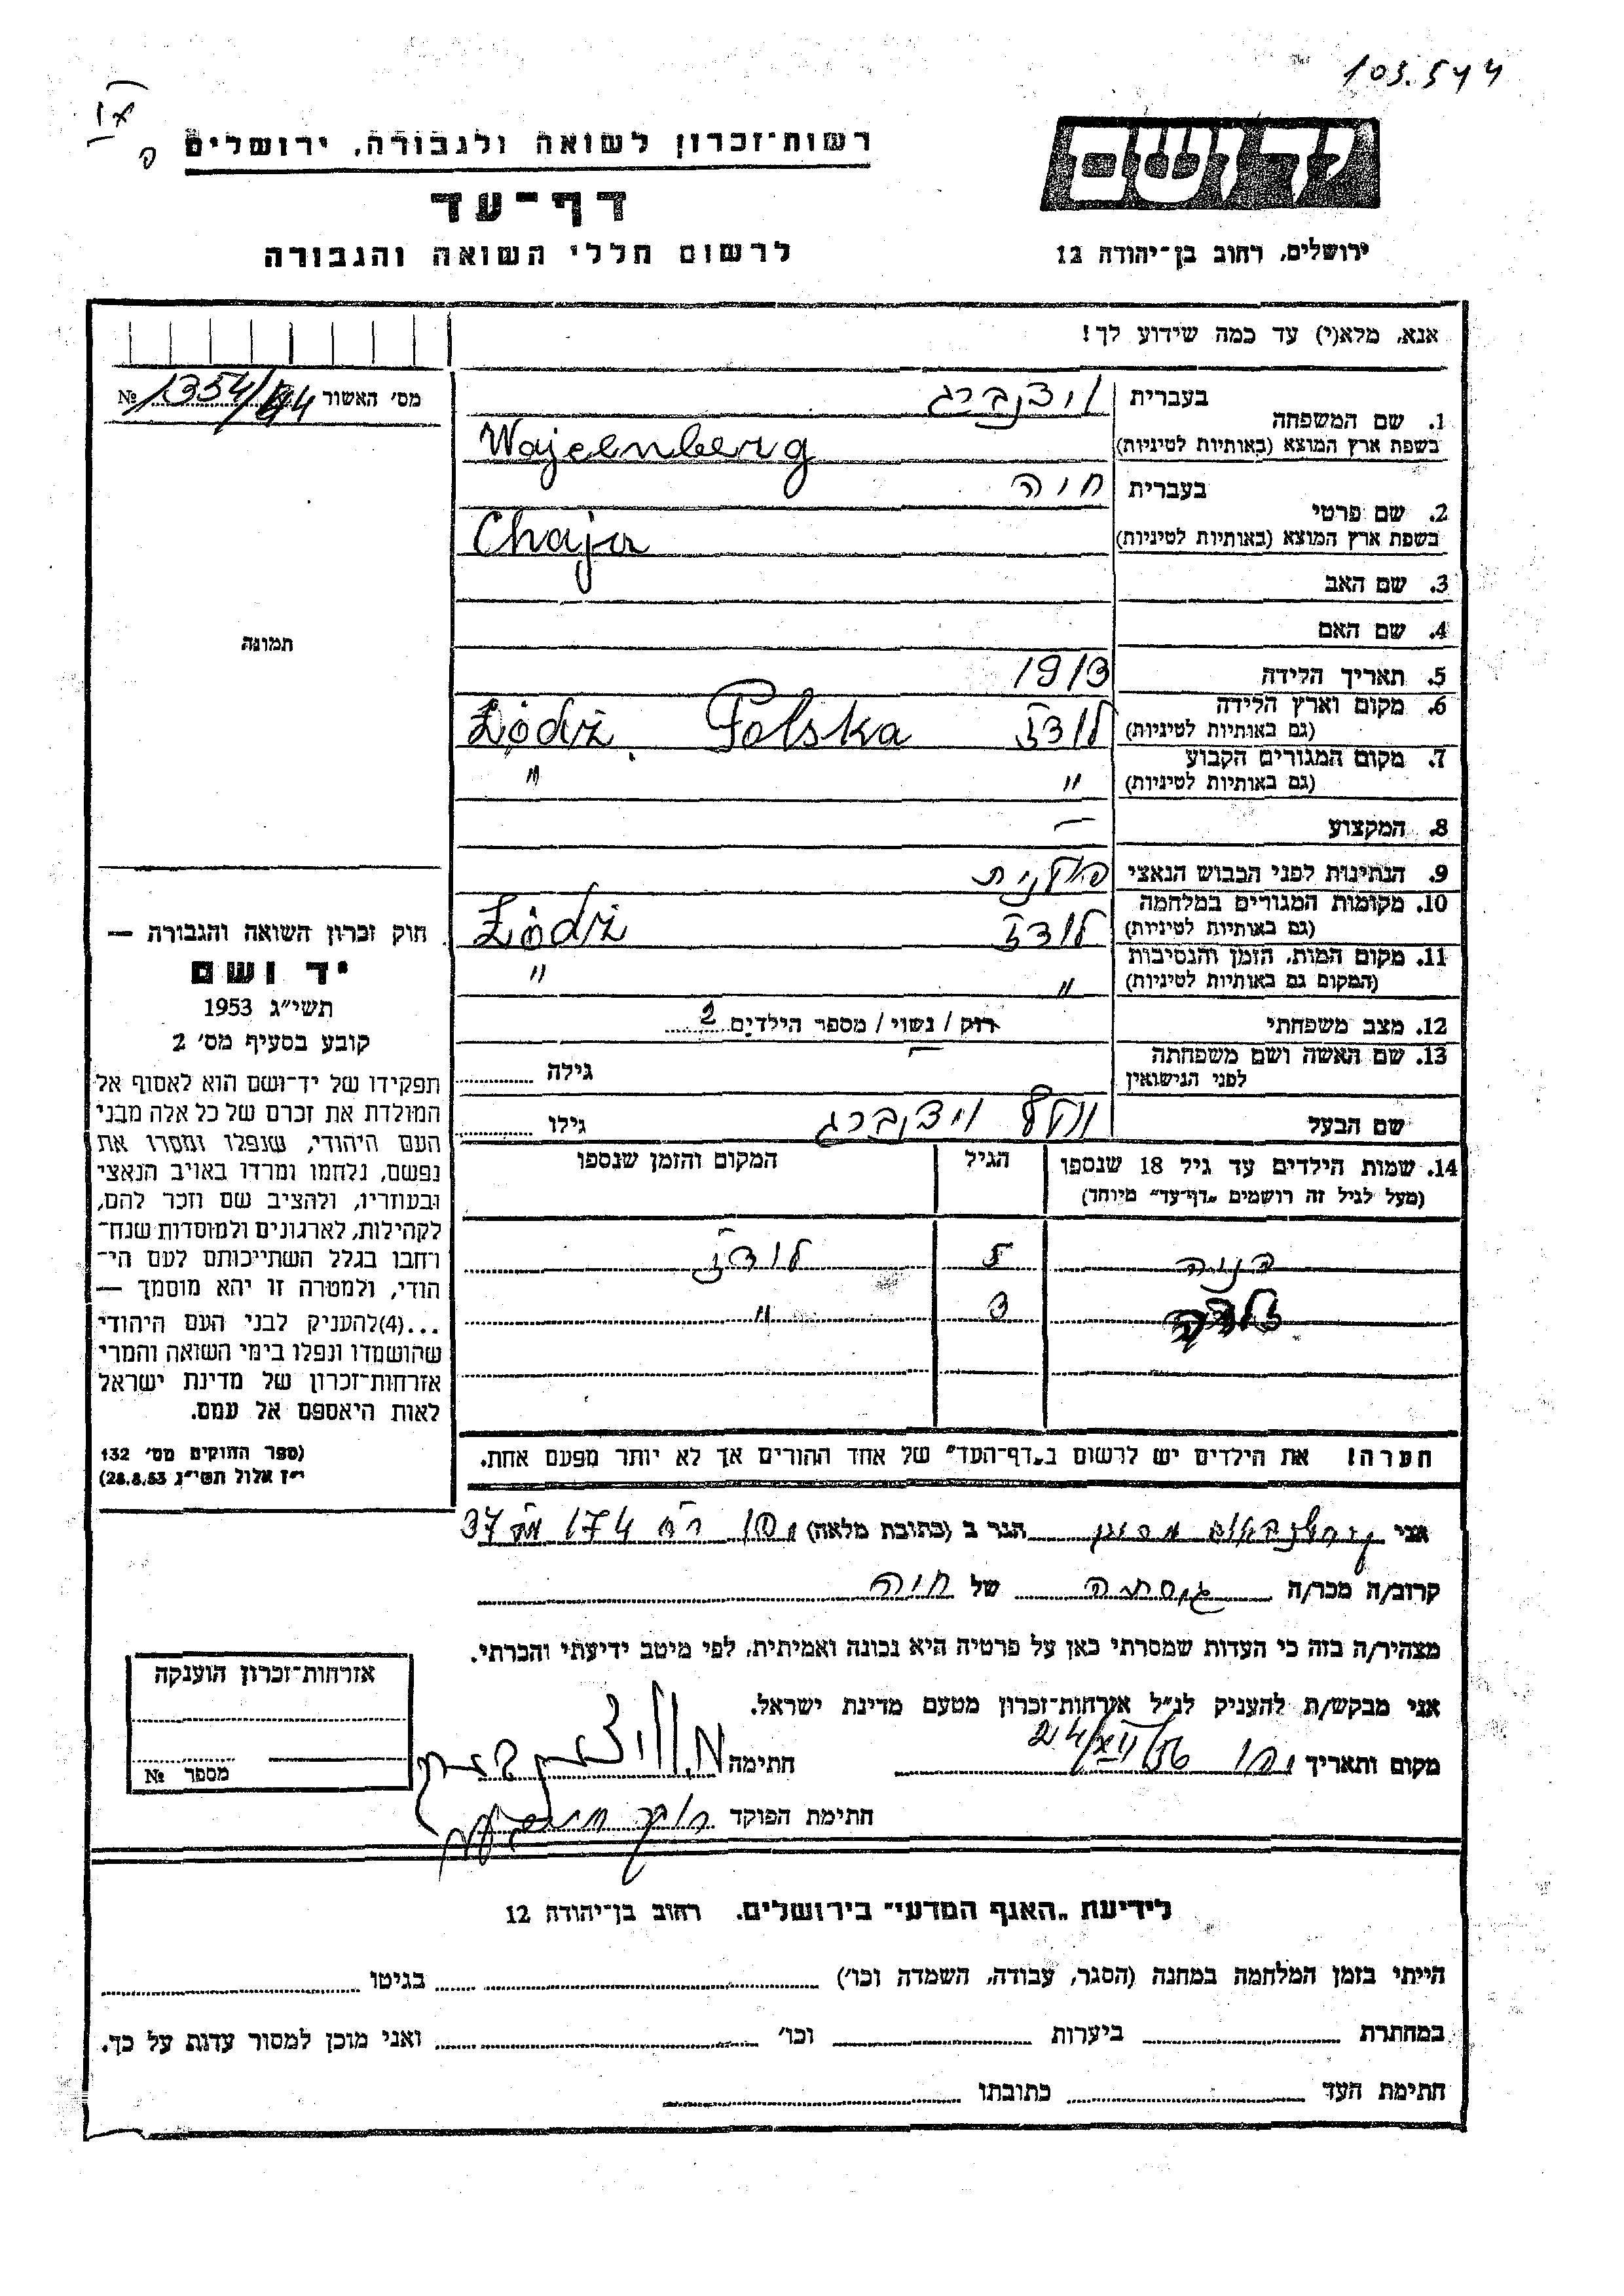 103.544
רשות־זכרון לשואה ולגבורה, ירושלים
דף־עד
לרשום חללי השואה והגבורה
ידושם
ירושלים, רחוב בן־יהודה 12
אנא, מלא(י) עד כמה שידוע לך!
מס' האשור № 1354/44
1. שם המשפחה בעברית ויצנברג
בשפת ארץ המוצא (באותיות לטיניות) Wajcenberg
2. שם פרטי בעברית חיה
בשפת ארץ המוצא (באותיות לטיניות) Chaja
3. שם האב
4. שם האם
5. תאריך הלידה 1913
6. מקום וארץ הלידה (גם באותיות לטיניות) לודז Łódź. Polska
7. מקום המגורים הקבוע (גם באותיות לטיניות) " "
8. המקצוע —
9. הנתינות לפני הכבוש הנאצי פולנית
10. מקומות המגורים במלחמה (גם באותיות לטיניות) לודז Łódź
11. מקום המות, הזמן והנסיבות (המקום גם באותיות לטיניות) " "
12. מצב משפחתי רוק / נשוי / מספר הילדים 2
13. שם האשה ושם משפחתה לפני הנישואין — גילה
שם הבעל ויצנברג גילו
14. שמות הילדים עד גיל 18 שנספו הגיל המקום והזמן שנספו
(מעל לגיל זה רושמים „דף־עד" מיוחד)
5 לודז
3 "
הערה! את הילדים יש לרשום ב„דף־העד" של אחד ההורים אך לא יותר מפעם אחת.
תמונה
חוק זכרון השואה והגבורה —
יד ושם
תשי"ג 1953
קובע בסעיף מס' 2
תפקידו של יד־ושם הוא לאסוף אל
המולדת את זכרם של כל אלה מבני
העם היהודי, שנפלו ומסרו את
נפשם, נלחמו ומרדו באויב הנאצי
ובעוזריו, ולהציב שם וזכר להם,
לקהילות, לארגונים ולמוסדות שנח־
רחבו בגלל השתייכותם לעם הי־
הודי, ולמטרה זו יהא מוסמך —
...(4)להעניק לבני העם היהודי
שהושמדו ונפלו בימי השואה והמרי
אזרחות־זכרון של מדינת ישראל
לאות היאספם אל עמם.
(ספר החוקים מס' 132
י"ז אלול תשי"ג 28.8.53)
אני הגר ב (כתובת מלאה) 174 37
קרוב/ה מכר/ה של חיה
מצהיר/ה בזה כי העדות שמסרתי כאן על פרטיה היא נכונה ואמיתית, לפי מיטב ידיעתי והכרתי.
אני מבקש/ת להעניק לנ"ל אזרחות־זכרון מטעם מדינת ישראל.
מקום ותאריך 24/XII/56 חתימה
חתימת הפוקד
אזרחות־זכרון הוענקה
מספר №
לידיעת „האגף המדעי" בירושלים. רחוב בן־יהודה 12
הייתי בזמן המלחמה במחנה (הסגר, עבודה, השמדה וכו') בגיטו
במחתרת ביערות וכו' ואני מוכן למסור עדות על כך.
חתימת העד כתובתו